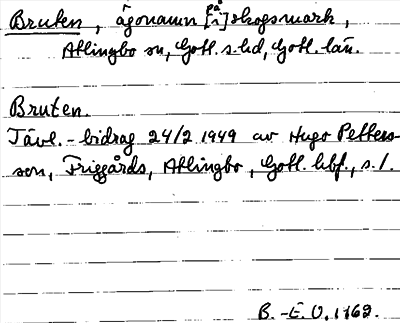 Bruten, ägonamn [på i] skogsmark,
Atlingbo sn, Gotl. s. hd, Gotl. län.
Bruten.
Tävl.-bidrag 24/2 1949 av Hugo Petters-
son, Friggårds, Atlingbo, Gotl. hbf., s. 1.
B.-E. O. 1762.